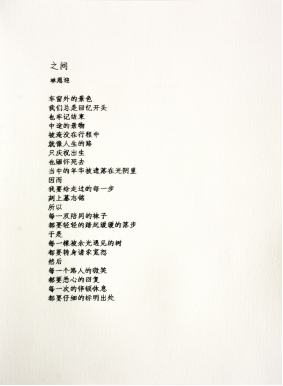 之间
车窗外的景色
我们总是回忆开头
也牢记结束
中途的景物
被淹没在行程中
就像人生的路
只庆祝出生
也缅怀死去
当中的年华被遗落在光阴里
因而
我要给走过的每一步
刻上墓志铭
所以
每一双陪同的袜子
都要轻轻的踏起缓缓的落步
于是
每一棵被余光遇见的树
都要转身请求宽恕
然后
每一个路人的微笑
都要悉心的回复
每一次的停顿休息
都要仔细的标明出处